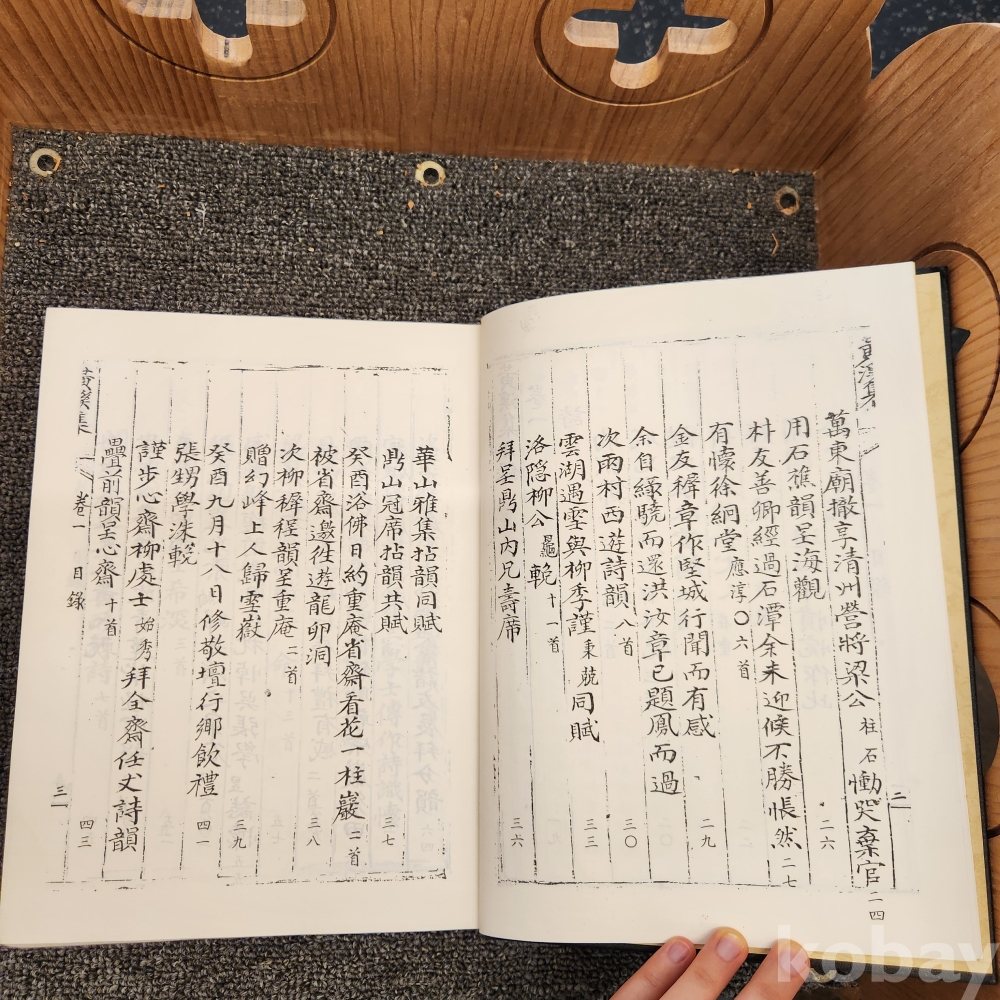 黃溪集
二
萬東廟撤享清州營將梁公柱石慟哭棄官 二四
用石樵韻呈海觀 二六
朴友善卿經過石潭余未迎候不勝悵然 二七
有懷徐絅堂應淳○六首
金友穉章作堅城行聞而有感 二九
余自綠驍而還洪汝章已題鳳而過
次雨村西遊詩韻八首 三〇
雲湖遇雪與柳季謹秉兢同賦 三三
洛隱柳公 輓十一首
拜呈鼎山內兄壽席 三六
華山雅集拈韻同賦
鼎山冠席拈韻共賦 三七
癸酉浴佛日約重庵省齋看花一柱巖二首
被省齋邀往遊龍卯洞 三八
次柳穉程韻呈重庵二首
贈幻峰上人歸雪嶽 三九
癸酉九月十八日修敬壇行鄉飲禮 四一
張甥學洙輓
謹步心齋柳處士始秀拜全齋任丈詩韻
疊前韻呈心齋十首 四三
黃溪集
卷一 目錄
三
kobay